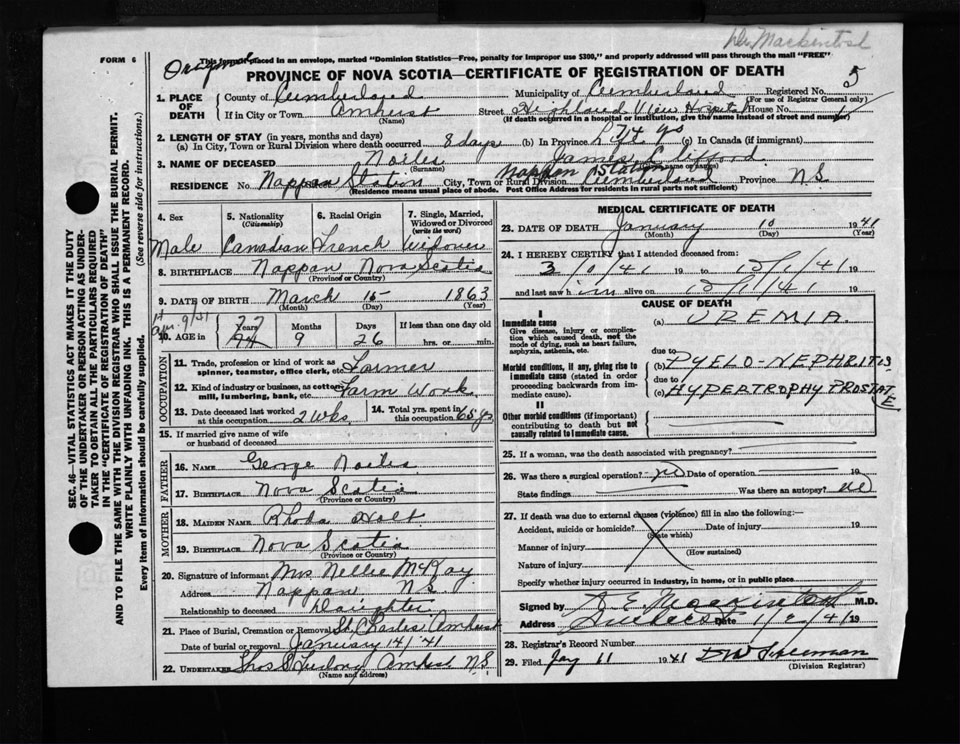 Dr. Mackintosh
This form if placed in an envelope, marked "Dominion Statistics—Free, penalty for improper use $300," and properly addressed will pass through the mail "FREE"
FORM 6
Original
PROVINCE OF NOVA SCOTIA—CERTIFICATE OF REGISTRATION OF DEATH
5
1. PLACE OF DEATH
County of Cumberland Municipality of Cumberland Registered No.
(For use of Registrar General only)
If in City or Town Amherst Street Highland View Hospital House No.
(Name) (If death occurred in a hospital or institution, give the name instead of street and number)
2. LENGTH OF STAY (in years, months and days)
(a) In City, Town or Rural Division where death occurred 8 days (b) In Province (c) In Canada (if immigrant)
3. NAME OF DECEASED Noiles James Clifford
(Surname)
RESIDENCE No. Nappan Station City, Town or Rural Division Nappan Station Cumberland Province N.S
(Residence means usual place of abode. Post Office Address for residents in rural parts not sufficient)
4. Sex 5. Nationality (Citizenship) 6. Racial Origin 7. Single, Married, Widowed or Divorced (write the word)
Male Canadian French Widower
8. BIRTHPLACE Nappan Nova Scotia
(Province or Country)
9. DATE OF BIRTH March 15 1863
(Month) (Day) (Year)
10. AGE in 77 Years 74 Months 9 Days 26 If less than one day old
hrs. or min.
OCCUPATION
11. Trade, profession or kind of work as spinner, teamster, office clerk, etc. Farmer
12. Kind of industry or business, as cotton mill, lumbering, bank, etc. Farm Work
13. Date deceased last worked at this occupation 2 wks 14. Total yrs. spent in this occupation 65 yrs
15. If married give name of wife or husband of deceased
FATHER
16. NAME George Noiles
17. BIRTHPLACE Nova Scotia
(Province or Country)
MOTHER
18. MAIDEN NAME Rhoda
19. BIRTHPLACE Nova Scotia
(Province or Country)
20. Signature of informant Mrs Nellie McKay
Address Nappan N.S.
Relationship to deceased Daughter
21. Place of Burial, Cremation or Removal St. Charles Amherst
Date of burial or removal January 14/41
22. UNDERTAKER Thos Furlong Amherst N.S
(Name and address)
MEDICAL CERTIFICATE OF DEATH
23. DATE OF DEATH January 10 1941
(Month) (Day) (Year)
24. I HEREBY CERTIFY that I attended deceased from:
3/1/41 19 to 19
and last saw him alive on 19
CAUSE OF DEATH
I
Immediate cause
Give disease, injury or complication which caused death, not the mode of dying, such as heart failure, asphyxia, asthenia, etc.
(a) UREMIA.
due to
Morbid conditions, if any, giving rise to immediate cause (stated in order proceeding backwards from immediate cause).
(b) PYELO-NEPHRITIS
due to
(c) HYPERTROPHY PROSTATE
II
Other morbid conditions (if important) contributing to death but not causally related to immediate cause.
25. If a woman, was the death associated with pregnancy?
26. Was there a surgical operation? no Date of operation 19
State findings Was there an autopsy? no
27. If death was due to external causes (violence) fill in also the following:—
Accident, suicide or homicide? Date of injury 19
(State which)
Manner of injury
(How sustained)
Nature of injury
Specify whether injury occurred in industry, in home, or in public place
Signed by Mackintosh M.D.
Address Amherst Date 19
28. Registrar's Record Number
29. Filed Jan 11 1941
(Division Registrar)
SEC. 46—VITAL STATISTICS ACT MAKES IT THE DUTY
OF THE UNDERTAKER OR PERSON ACTING AS UNDER-
TAKER TO OBTAIN ALL THE PARTICULARS REQUIRED
IN THE "CERTIFICATE OF REGISTRATION OF DEATH"
AND TO FILE THE SAME WITH THE DIVISION REGISTRAR WHO SHALL ISSUE THE BURIAL PERMIT.
WRITE PLAINLY WITH UNFADING INK. THIS IS A PERMANENT RECORD.
Every item of information should be carefully supplied. (See reverse side for instructions.)